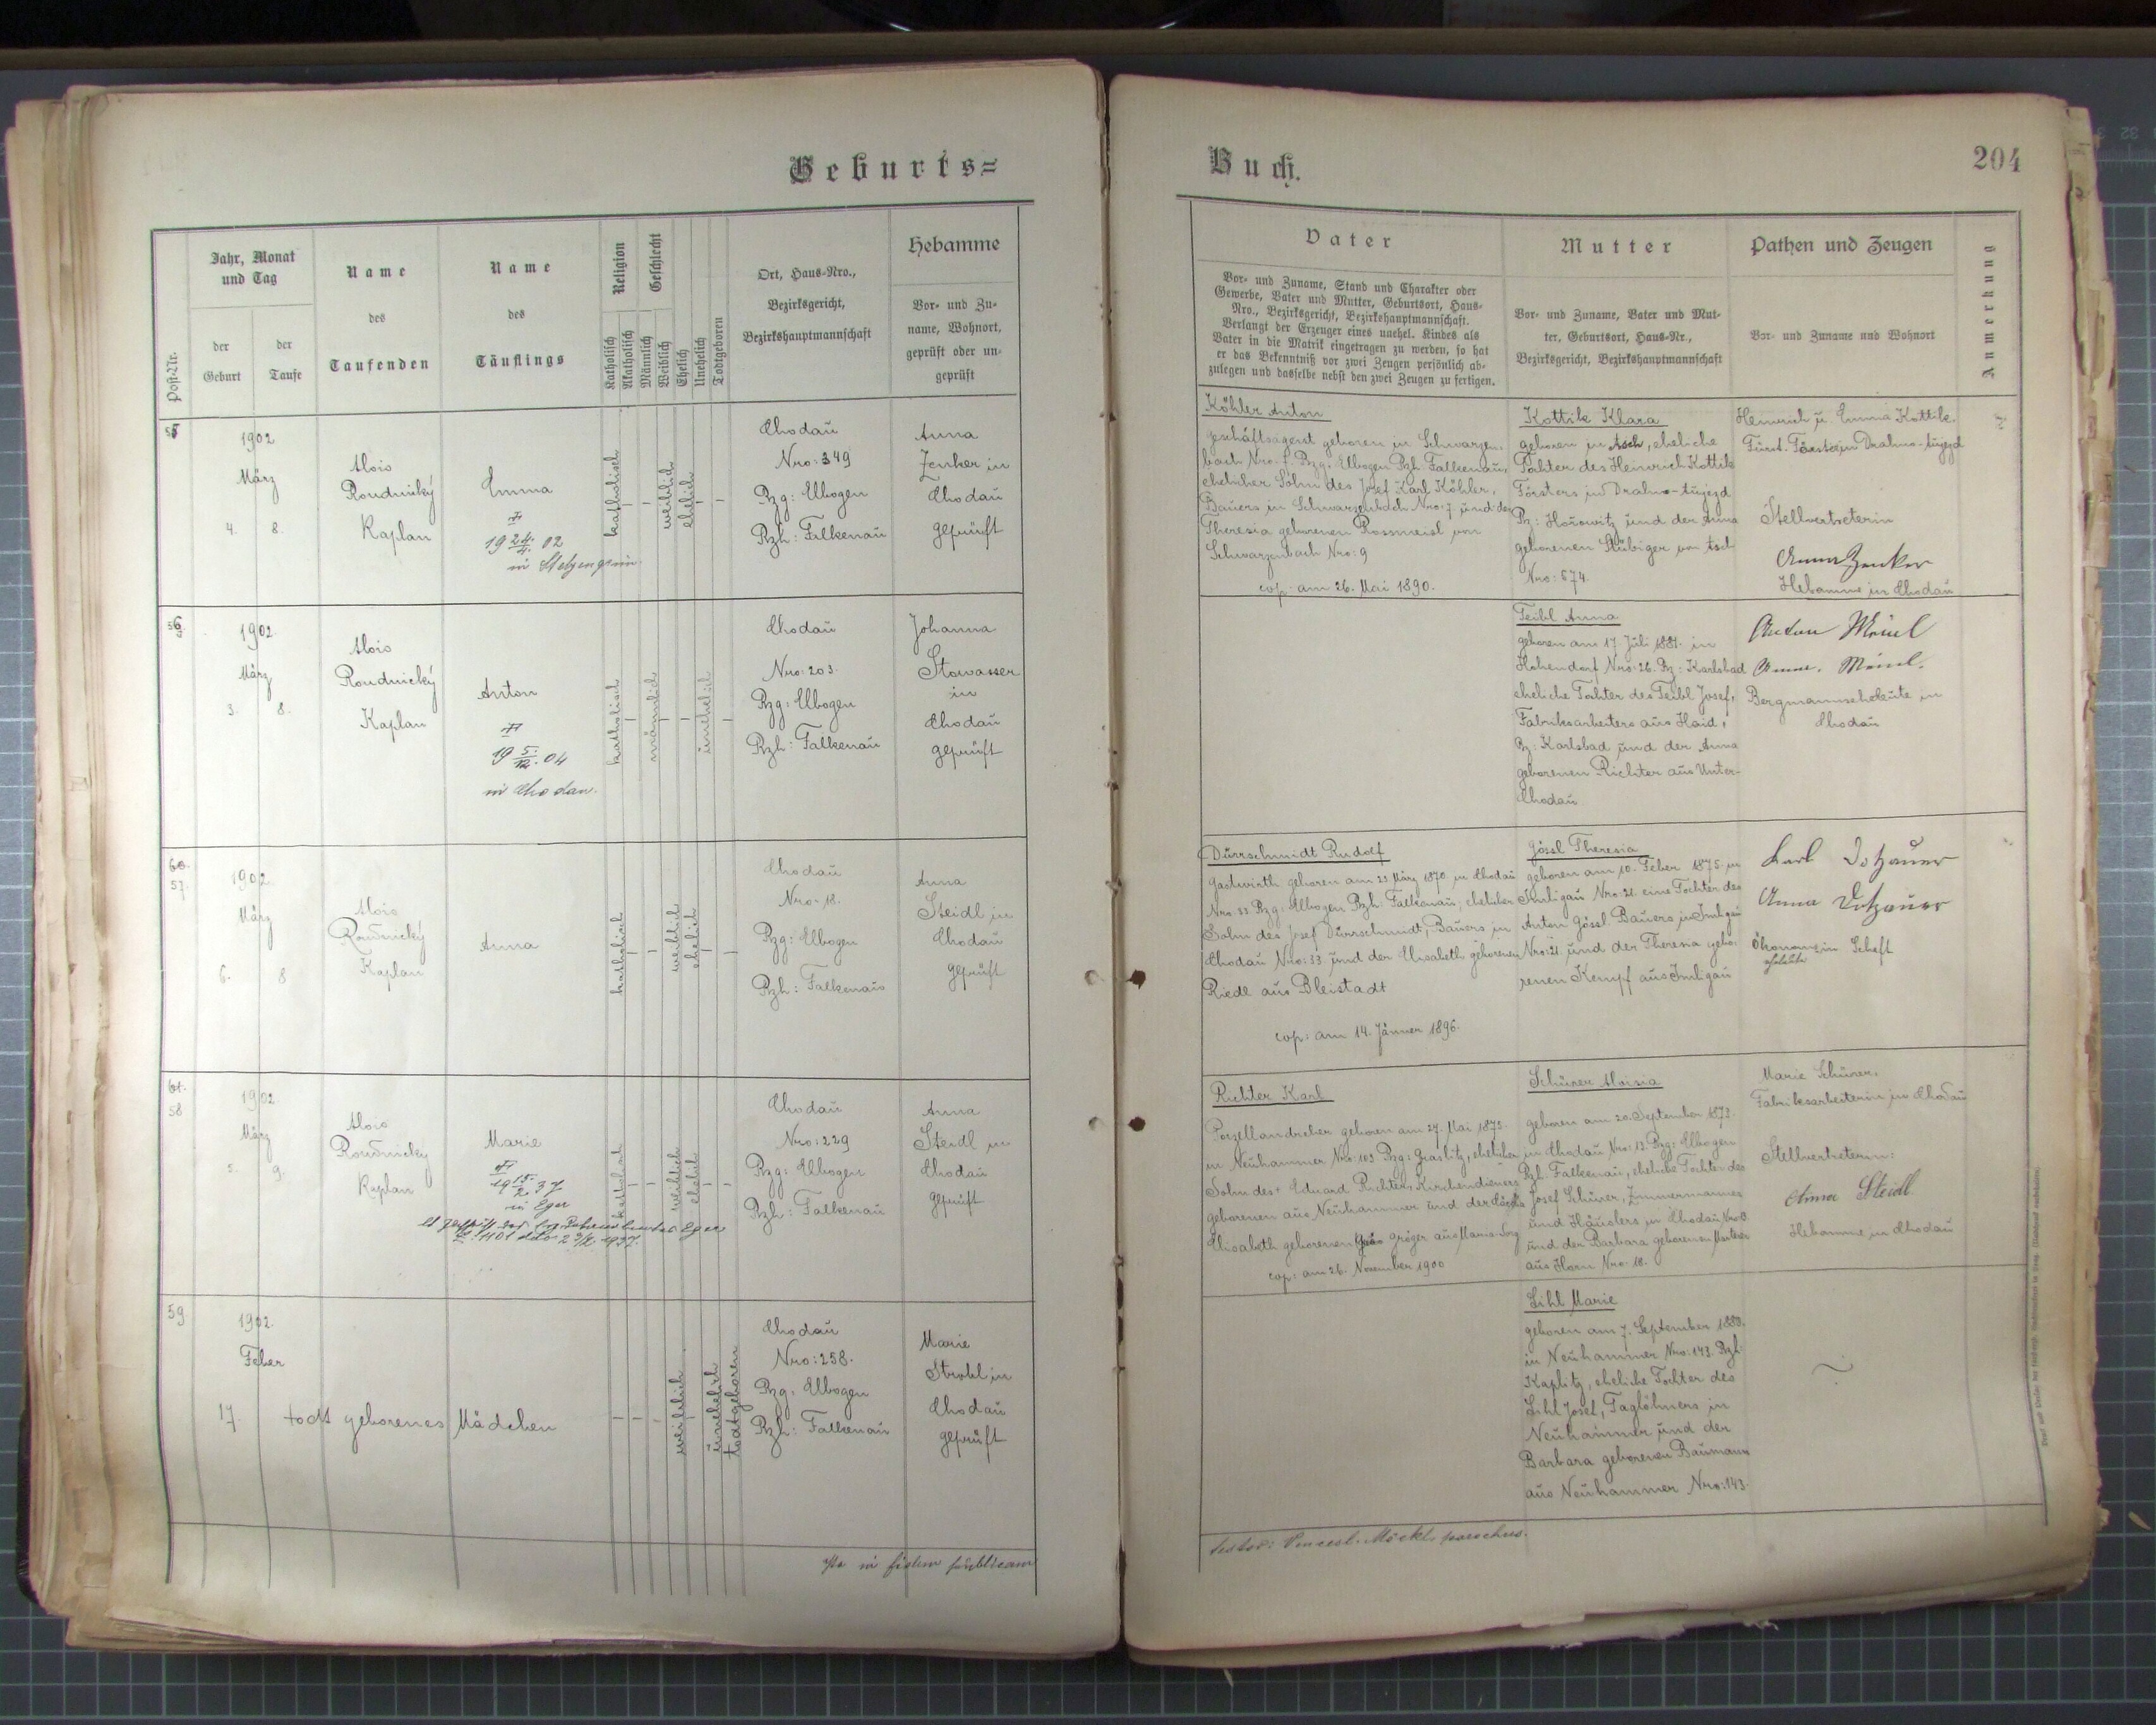 Geburts=
Jahr, Monat
und Tag
der
Geburt
der
Taufe
Post-Nr.
Name
des
Taufenden
Name
des
Täuflings
Religion
Katholisch
Akatholisch
Geschlecht
Männlich
Weiblich
Ehelich
Unehelich
Todtgeboren
Ort, Haus-Nro.,
Bezirksgericht,
Bezirkshauptmannschaft
Hebamme
Vor- und Zu-
name, Wohnort,
geprüft oder un-
geprüft
1902
März
4. 8.
Alois
Roudnický
Kaplan
Emma
19 24/4. 02
in Stelzengrün.
katholisch
weiblich
ehelich
Chodau
Nro: 349
Bzg: Elbogen
Bzh: Falkenau
Anna
Zenker in
Chodau
geprüft
56
1902
März
3. 8.
Alois
Roudnický
Kaplan
Anton
19 5./12. 04
in Chodau.
katholisch
männlich
unehelich
Chodau
Nro: 203.
Bzg: Elbogen
Bzh: Falkenau
Johanna
Stowasser
in
Chodau
geprüft
60.
57.
1902
März
6. 8
Alois
Roudnický
Kaplan
Anna
katholisch
weiblich
ehelich
Chodau
Nro- 18.
Bzg: Elbogen
Bzh: Falkenau
Anna
Steidl in
Chodau
geprüft
61.
58
1902
März
5. 9.
Alois
Roudnický
Kaplan
Marie
19 15./2. 37
in Eger
katholisch
weiblich
ehelich
Chodau
Nro: 229
Bzg: Elbogen
Bzh: Falkenau
Anna
Steidl in
Chodau
geprüft
59.
1902.
Feber
17. todt geborenes Mädchen
weiblich
unehelich
todtgeboren
Chodau
Nro: 258.
Bzg: Elbogen
Bzh: Falkenau
Marie
Strohl in
Chodau
geprüft
in fidem publicam
Buch.
204
Vater
Vor- und Zuname, Stand und Charakter oder
Gewerbe, Vater und Mutter, Geburtsort, Haus-
Nro., Bezirksgericht, Bezirkshauptmannschaft.
Verlangt der Erzeuger eines unehel. Kindes als
Vater in die Matrik eingetragen zu werden, so hat
er das Bekenntniß vor zwei Zeugen persönlich ab-
zulegen und dasselbe nebst den zwei Zeugen zu fertigen.
Mutter
Vor- und Zuname, Vater und Mut-
ter, Geburtsort, Haus-Nr.,
Bezirksgericht, Bezirkshauptmannschaft
Pathen und Zeugen
Vor- und Zuname und Wohnort
Anmerkung
Köhler Anton
Geschäftsagent geboren in Schwarzen-
bach Nro. 7. Bzg. Elbogen Bzh. Falkenau,
ehelicher Sohn des Josef Karl Köhler,
Bauers in Schwarzenbach Nro: 7 und der
Theresia geborenen Rossmeisl von
Schwarzenbach Nro: 9
cop: am 26. Mai 1890.
Kottik Klara
geboren in Asch, eheliche
Tochter des Heinrich Kottik
Försters in Drahno-Aujezd
Bz: Horowitz und der Anna
geborenen Stübiger von Asch
Nro: 674.
Heinrich u. Emma Kottik.
Fürst. Förster in Drahno-Aujezd
Stellvertreterin
Anna Zenker
Hebamme in Chodau
Teibl Anna
geboren am 17. Juli 1881. in
Hohendorf Nro: 26. Bz: Karlsbad
eheliche Tochter des Teibl Josef,
Fabriksarbeiters aus Haid,
Bz: Karlsbad und der Anna
geborenen Richter aus Unter-
Chodau
Anton
Anna
Bergmannseheleute in
Chodau
Dürrschmidt Rudolf
Gastwirth geboren am 23. März 1870 in Chodau
Nro. 33 Bzg: Elbogen Bzh. Falkenau; ehelicher
Sohn des Josef Dürrschmidt, Bauers in
Chodau Nro: 33 und der Elisabeth geborenen
Riedl aus Bleistadt
cop: am 14. Jänner 1896.
Gössl Theresia
geboren am 10. Feber 1875. in
Imligau Nro: 21. eine Tochter des
Anton Gössl Bauers in Imligau
Nro: 21. und der Theresia gebo-
renen Kempf aus Imligau
Karl Dotzauer
Anna Dotzauer
Ökonomen in Schaft
Richter Karl
Porzellandreher geboren am 27. Mai 1873.
in Neuhammer Nro: 103 Bzg: Graslitz, ehelicher
Sohn des Eduard Richter, Kirchendieners
geborenen aus Neuhammer und der
Elisabeth geborenen Gröger aus Maria-Sorg
cop: am 26. November 1900
Schürer Aloisia
geboren am 20. September 1873.
in Chodau Nro: 13. Bzg: Elbogen
Bzh. Falkenau, eheliche Tochter des
Josef Schürer, Zimmermannes
und Häuslers in Chodau Nro 13.
und der Barbara geborenen
aus Horn Nro. 18.
Marie Schürer,
Fabriksarbeiterin in Chodau
Stellvertreterin:
Anna Steidl
Hebamme in Chodau
Lihl Marie
geboren am 7. September 1883.
in Neuhammer Nro: 143. Bzh:
Kaplitz, eheliche Tochter des
Lihl Josef, Taglöhners in
Neuhammer und der
Barbara geborenen Baumann
aus Neuhammer Nro: 143.
testor: Vencesl. Möckl, parochus.